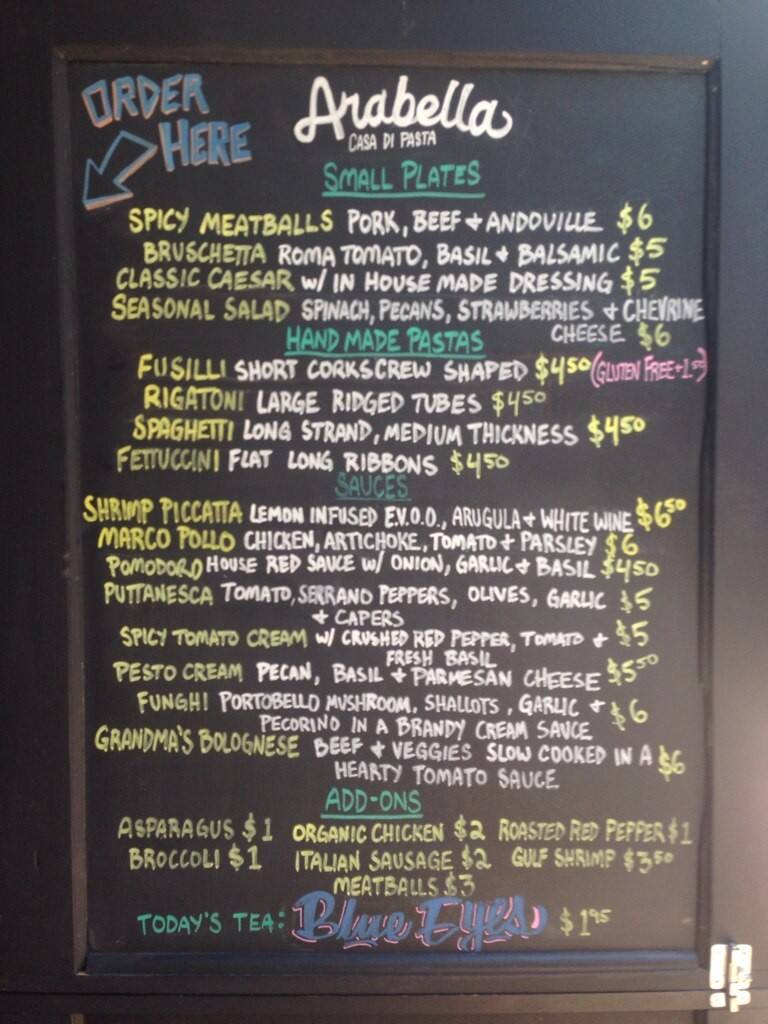 ORDER
HERE
Arabella
CASA DI PASTA
SMALL PLATES
SPICY MEATBALLS PORK, BEEF + ANDOVILLE $6
BRUSCHETTA ROMA TOMATO, BASIL + BALSAMIC $5
CLASSIC CAESAR W/ IN HOUSE MADE DRESSING $5
SEASONAL SALAD SPINACH, PECANS, STRAWBERRIES + CHEVRINE
CHEESE $6
HAND MADE PASTAS
FUSILLI SHORT CORKSCREW SHAPED $450 (GLUTEN FREE +1.50)
RIGATONI LARGE RIDGED TUBES $450
SPAGHETTI LONG STRAND, MEDIUM THICKNESS $450
FETTUCCINI FLAT LONG RIBBONS $450
SAUCES
SHRIMP PICCATTA LEMON INFUSED E.V.O.O., ARUGULA + WHITE WINE $650
MARCO POLLO CHICKEN, ARTICHOKE, TOMATO + PARSLEY $6
POMODORO HOUSE RED SAUCE W/ ONION, GARLIC + BASIL $450
PUTTANESCA TOMATO, SERRANO PEPPERS, OLIVES, GARLIC $5
+ CAPERS
SPICY TOMATO CREAM W/ CRUSHED RED PEPPER, TOMATO + $5
FRESH BASIL
PESTO CREAM PECAN, BASIL + PARMESAN CHEESE $550
FUNGHI PORTOBELLO MUSHROOM, SHALLOTS, GARLIC + $6
PECORINO IN A BRANDY CREAM SAUCE
GRANDMA'S BOLOGNESE BEEF + VEGGIES SLOW COOKED IN A $6
HEARTY TOMATO SAUCE
ADD-ONS
ASPARAGUS $1 ORGANIC CHICKEN $2 ROASTED RED PEPPER $1
BROCCOLI $1 ITALIAN SAUSAGE $2 GULF SHRIMP $350
MEATBALLS $3
TODAY'S TEA: Blue Eyes $195